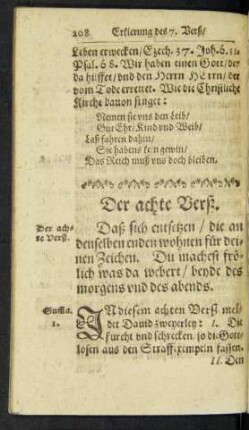 208 Erklerung des 7. Verß/
Leben erwecken/Ezech. 37. Joh. 6. 11
Psal. 68. Wir haben einen Gott/der
da hilffet/vnd den Herrn HErrn/der
vom Tode errettet. Wie die Christliche
Kirche dauon singet:
Nemen sie vns den Leib/
Gut Ehr/Kind vnd Weib/
Laß fahren dahin/
Sie habens kein gewin/
Das Reich muß vns doch bleiben.
Der achte Verß.
Der ach-
te Verß.
Daß sich entsetzen/die an
denselben enden wohnen für dei-
nen Zeichen. Du machest frö-
lich was da webert/beyde des
morgens vnd des abends.
Summa.
1.
IN diesem achten Verß mel-
det Dauid zweyerley: 1. Die
furcht vnd schrecken so die Gott-
losen aus den Straffexempeln fassen.
II. Den